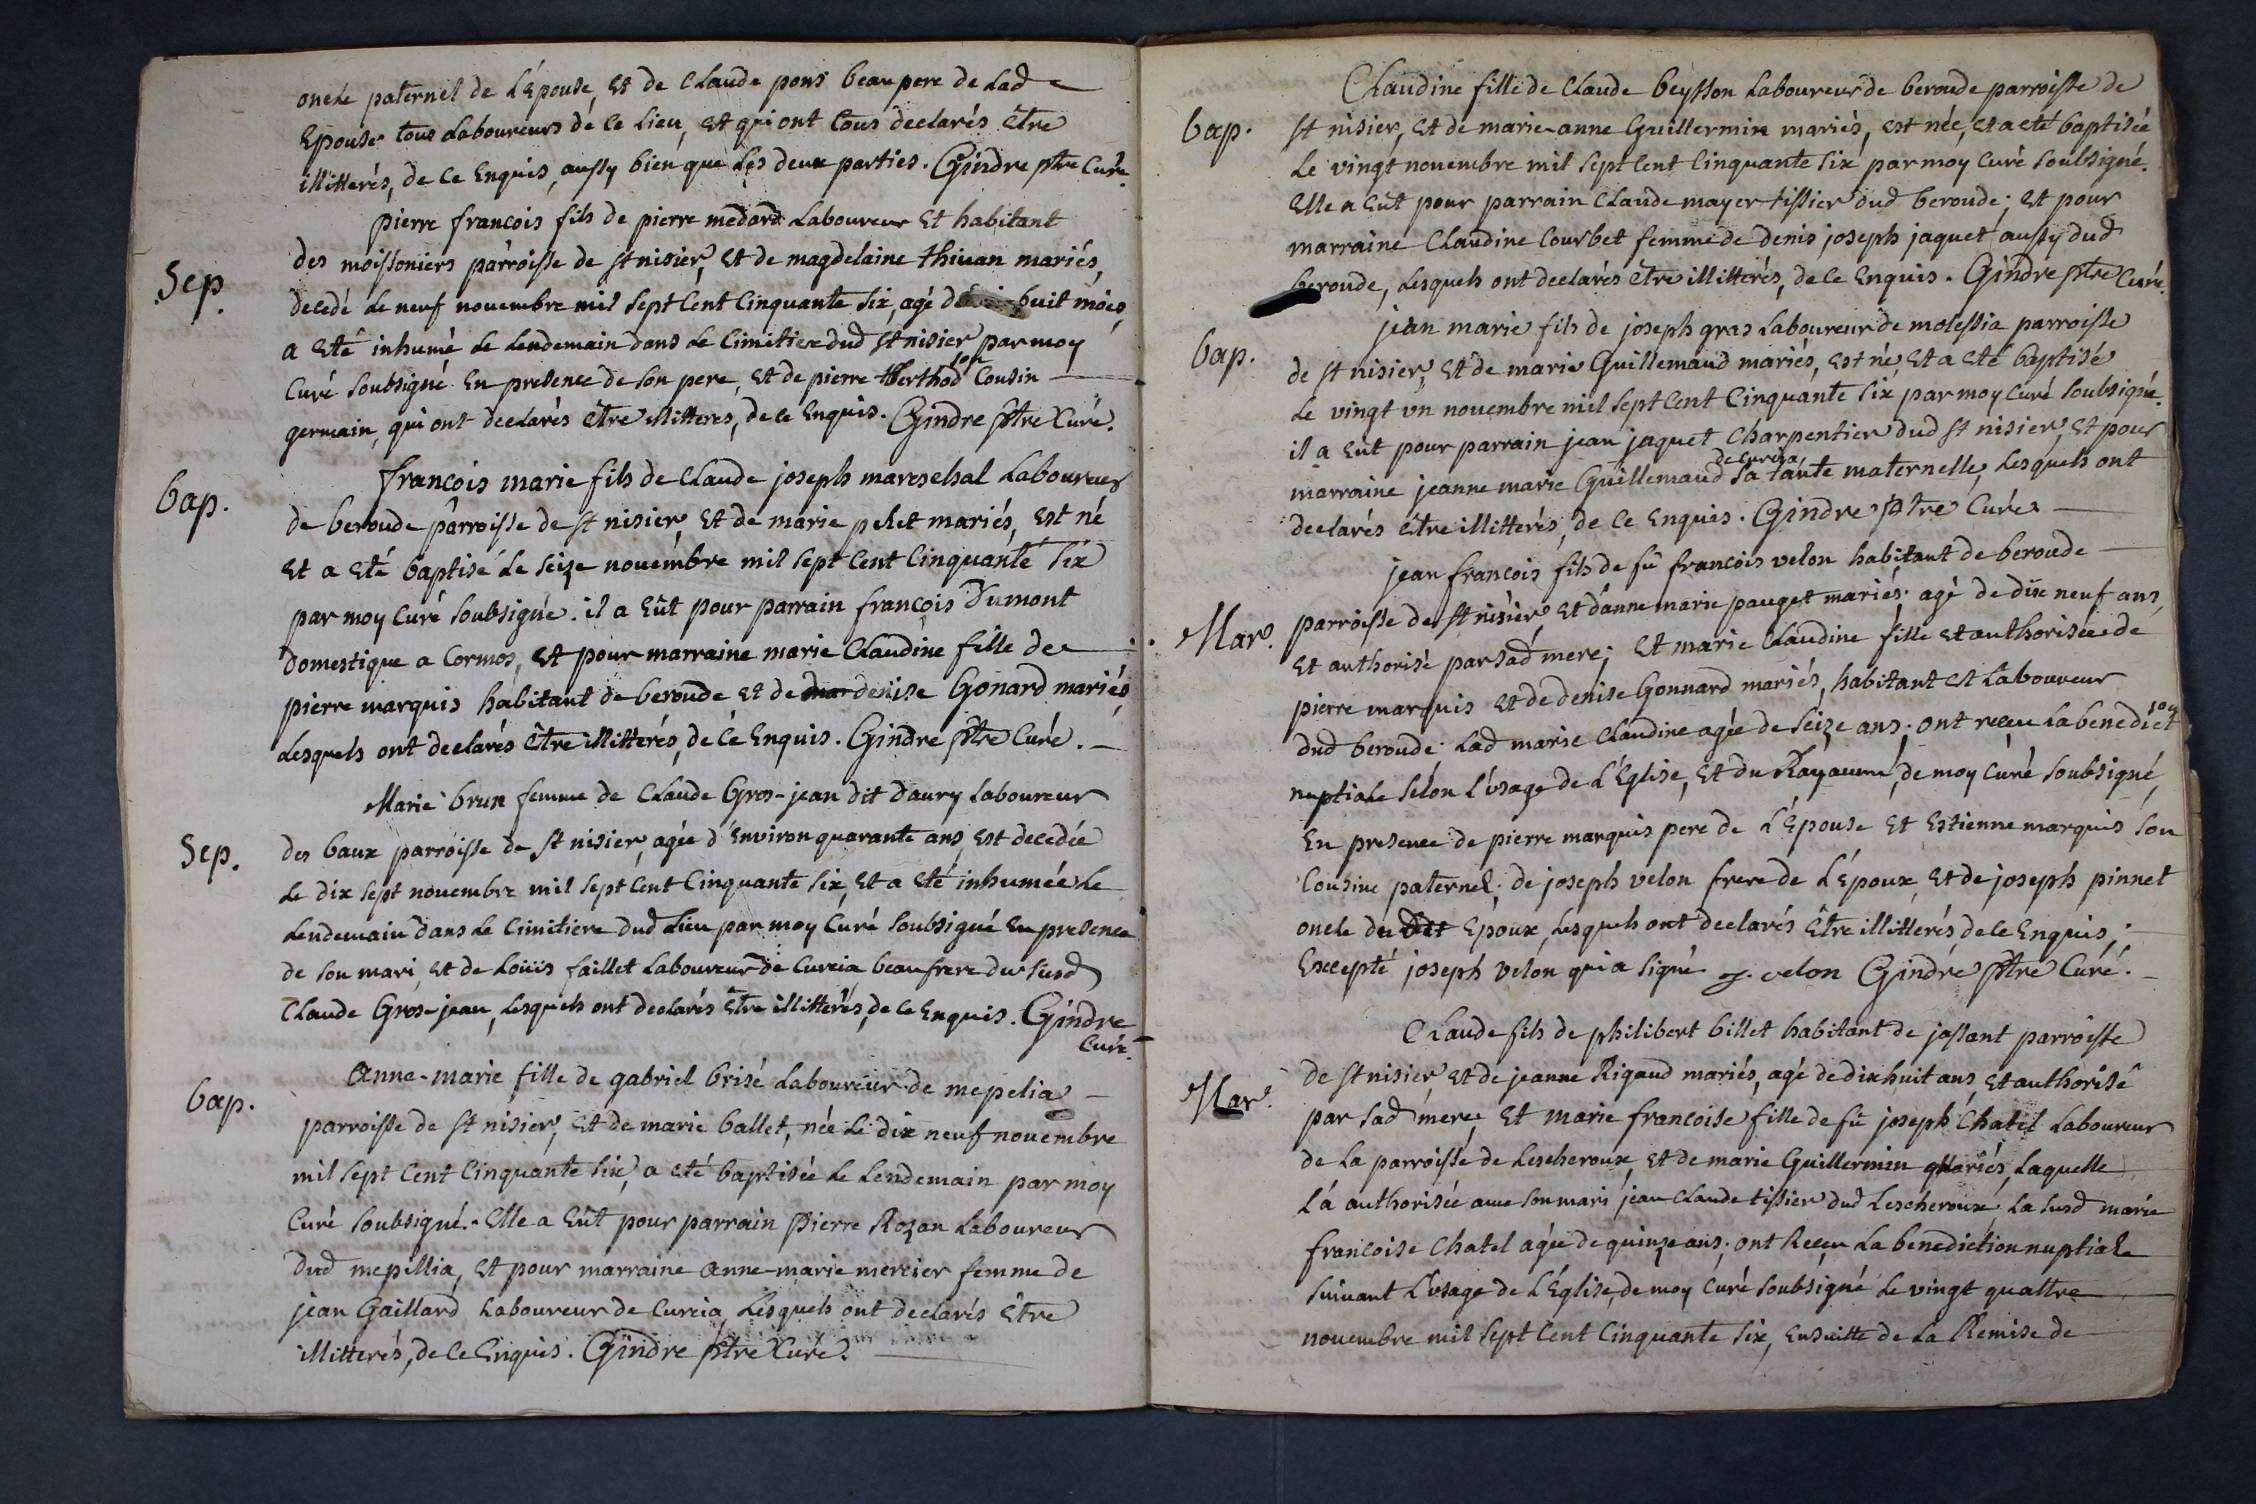 oncle paternel de L'Epouse, et de Claude pons beau pere de Lad
Epouse tous Laboureurs de ce Lieu, et qui ont tous declarés être
illitterés, de ce Enquis, aussy bien que Les deux parties. Gindre ptre Curé.
pierre francois fils de pierre medard Laboureur et habitant
Sep.
des moissoniers parroisse de st nisier, et de magdelaine thiuan mariés,
decedé Le neuf novembre mil sept Cent Cinquante six, agé huit mois,
a eté inhumé Le Lendemain dans Le Cimitiere dud st nisier par moy
Curé soubsigné En presence de son pere, et de pierre son Cousin
germain, qui ont declarés être illitteres, de ce Enquis. Gindre ptre Curé.
francois marie fils de Claude joseph mareschal Laboureur
bap.
de beroude parroisse de st nisier, et de marie pelet mariés, est né
et a eté baptisé Le seize novembre mil sept Cent Cinquante six
par moy Curé soubsigné. il a eût pour parrain françois Dumont
Domestique a Cormos, et pour marraine marie Claudine fille de
pierre marquis habitant de beroude et de denise Gonard mariés,
Lesquels ont declarés être illitterés, de ce Enquis. Gindre ptre Curé.
Marie brun femme de Claude Gros-jean dit daury Laboureur
Sep.
des baux parroisse de st nisier, agée d'Environ quarante ans, est decedée
Le dix sept novembre mil sept Cent Cinquante six, et a eté inhumée Le
Lendemain dans Le Cimitiere dud Lieu par moy Curé soubsigné En presence
de son mari, et de Loüis faillet Laboureur de Curcia beaufrere du susd
Claude Gros-jean, Lesquels ont declarés être illitterés, de ce Enquis. Gindre
Curé.
Anne-marie fille de gabriel brisé Laboureur de mepelia
bap.
parroisse de st nisier, et de marie ballet, née Le dix neuf novembre
mil sept Cent Cinquante six, a eté baptisée Le Lendemain par moy
Curé soubsigné. Elle a eût pour parrain pierre Rozan Laboureur
Dud mepillia, et pour marraine Anne-marie mercier femme de
jean Gaillard Laboureur de Curcia, Lesquels ont declarés être
illitterés, de ce Enquis. Gindre ptre Curé.
Claudine fille de Claude beysson Laboureur de beroude parroisse de
bap.
st nisier, et de marie-anne Guillermin mariés, est née, et a eté baptisée
Le vingt novembre mil sept Cent Cinquante six par moy Curé soubsigné.
Elle a eût pour parrain Claude mayer tissier dud beroude; et pour
marraine Claudine Courbet femme de denis joseph jaquet aussy dud
beroude, Lesquels ont declarés être illitterés, de ce Enquis. Gindre ptre Curé.
jean marie fils de joseph gras Laboureur de molessia parroisse
bap.
de st nisier, et de marie Guillemaud mariés, est né, et a eté baptisé
Le vingt un novembre mil sept Cent Cinquante six par moy Curé soubsigné.
il a eût pour parrain jean jaquet Charpentier dud st nisier, et pour
marraine jeanne marie Guillemaud de Curcia sa tante maternelle, Lesquels ont
declarés être illitterés, de ce Enquis. Gindre ptre Curé.
jean francois fils de fû francois velon habitant de beroude
Mar.
parroisse de st nisier, et d'anne marie pauget mariés, agé de dix neuf ans,
et authorisé par sad mere; et marie Claudine fille et authorisée de
pierre marquis et de denise Gonnard mariés, habitant et Laboureur
dud beroude. Lad marie Claudine agée de seize ans; ont receu La benediction
nuptiale selon L'usage de L'Eglise, et du Royaume, de moy Curé soubsigné,
En presence de pierre marquis pere de L'Epouse et Estienne marquis son
Cousin paternel; de joseph velon frere de L'époux, et de joseph pinnet
oncle dudit Epoux, Lesquels ont declarés être illitterés, de ce Enquis,
Excepté joseph velon qui a signé j. velon Gindre ptre Curé.
Claude fils de philibert billet habitant de jassant parroisse
Mar.
de st nisier, et de jeanne Rigaud mariés, agé de dix huit ans, et authorisé
par sad mere; et marie francoise fille de fû joseph Chatel Laboureur
de La parroisse de Lescheroux, et de marie Guillermin mariés, Laquelle
L'a authorisée avec son mari jean Claude tissier dud Lescheroux. La susd marie
francoise Chatel agée de quinze ans; ont Receu La benediction nuptiale
suivant L'usage de L'Eglise, de moy Curé soubsigné Le vingt quattre
novembre mil sept Cent Cinquante six, Ensuitte de La Remise de